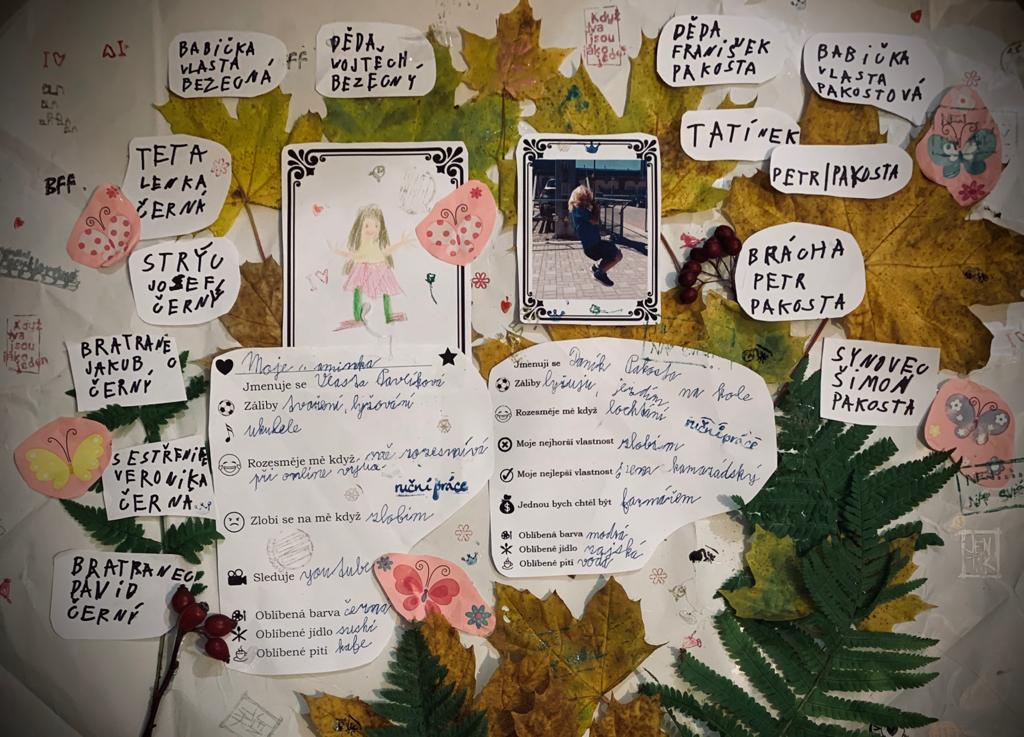 BABIČKA
VLASTA
BEZECNÁ
DĚDA
VOJTĚCH
BEZECNÝ
DĚDA
FRANIŠEK
PAKOSTA
BABIČKA
VLASTA
PAKOSTOVÁ
TATÍNEK
PETR PAKOSTA
BRÁCHA
PETR
PAKOSTA
SYNOVEC
ŠIMON
PAKOSTA
TETA
LENKA
ČERNÁ
BFF
STRÝC
JOSEF
ČERNÝ
BRATRANEC
JAKUB
ČERNÝ
SESTŘENICE
VERONIKA
ČERNÁ
BRATRANEC
DAVID
ČERNÝ
Moje maminka
Jmenuje se Vlasta Pavlíková
Záliby tvoření, lyžování
ukulele
Rozesměje mě když
při online
ruční práce
Zlobí se na mě když zlobím
Sleduje youtube
Oblíbená barva černá
Oblíbené jídlo sushi
Oblíbené pití kafe
Jmenuji se Daník Pakosta
Záliby lyžuju, jezdím na kole
Rozesměje mě když lochtání
ruční práce
Moje nejhorší vlastnost zlobím
Moje nejlepší vlastnost jsem kamarádský
Jednou bych chtěl být farmářem
Oblíbená barva modrá
Oblíbené jídlo rajská
Oblíbené pití voda